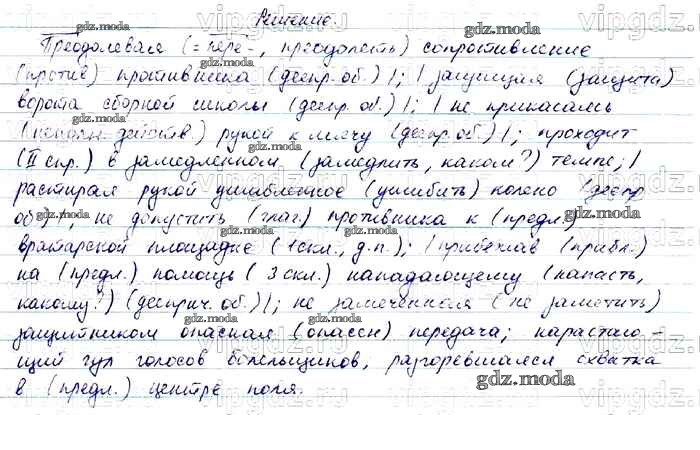 Решение.
Преодолевая (= пере-, преодолеть) сопротивление
(против) противника (деепр. об.) |; | защищая (защита)
ворота сборной школы (деепр. об.) |; | не прикасаясь
(несоверш. действ.) рукой к мячу (деепр. об.) |; проходит
(II спр.) в замедленном (замедлить, каком?) темпе; |
растирая рукой ушибленное (ушибить) колено (деепр.
об.) |; не допустить (глаг.) противника к (предл.)
вратарской площадке (1 скл., д.п.); | прибежав (прибл.)
на (предл.) помощь (3 скл.) нападающему (напасть,
какому?) (дееприч. об.) |; не замеченная (не заметить)
защитником опасная (опасен) передача; нарастаю-
щий гул голосов болельщиков, разгоревшаяся схватка
в (предл.) центре поля.
gdz.moda
vipgdz.ru